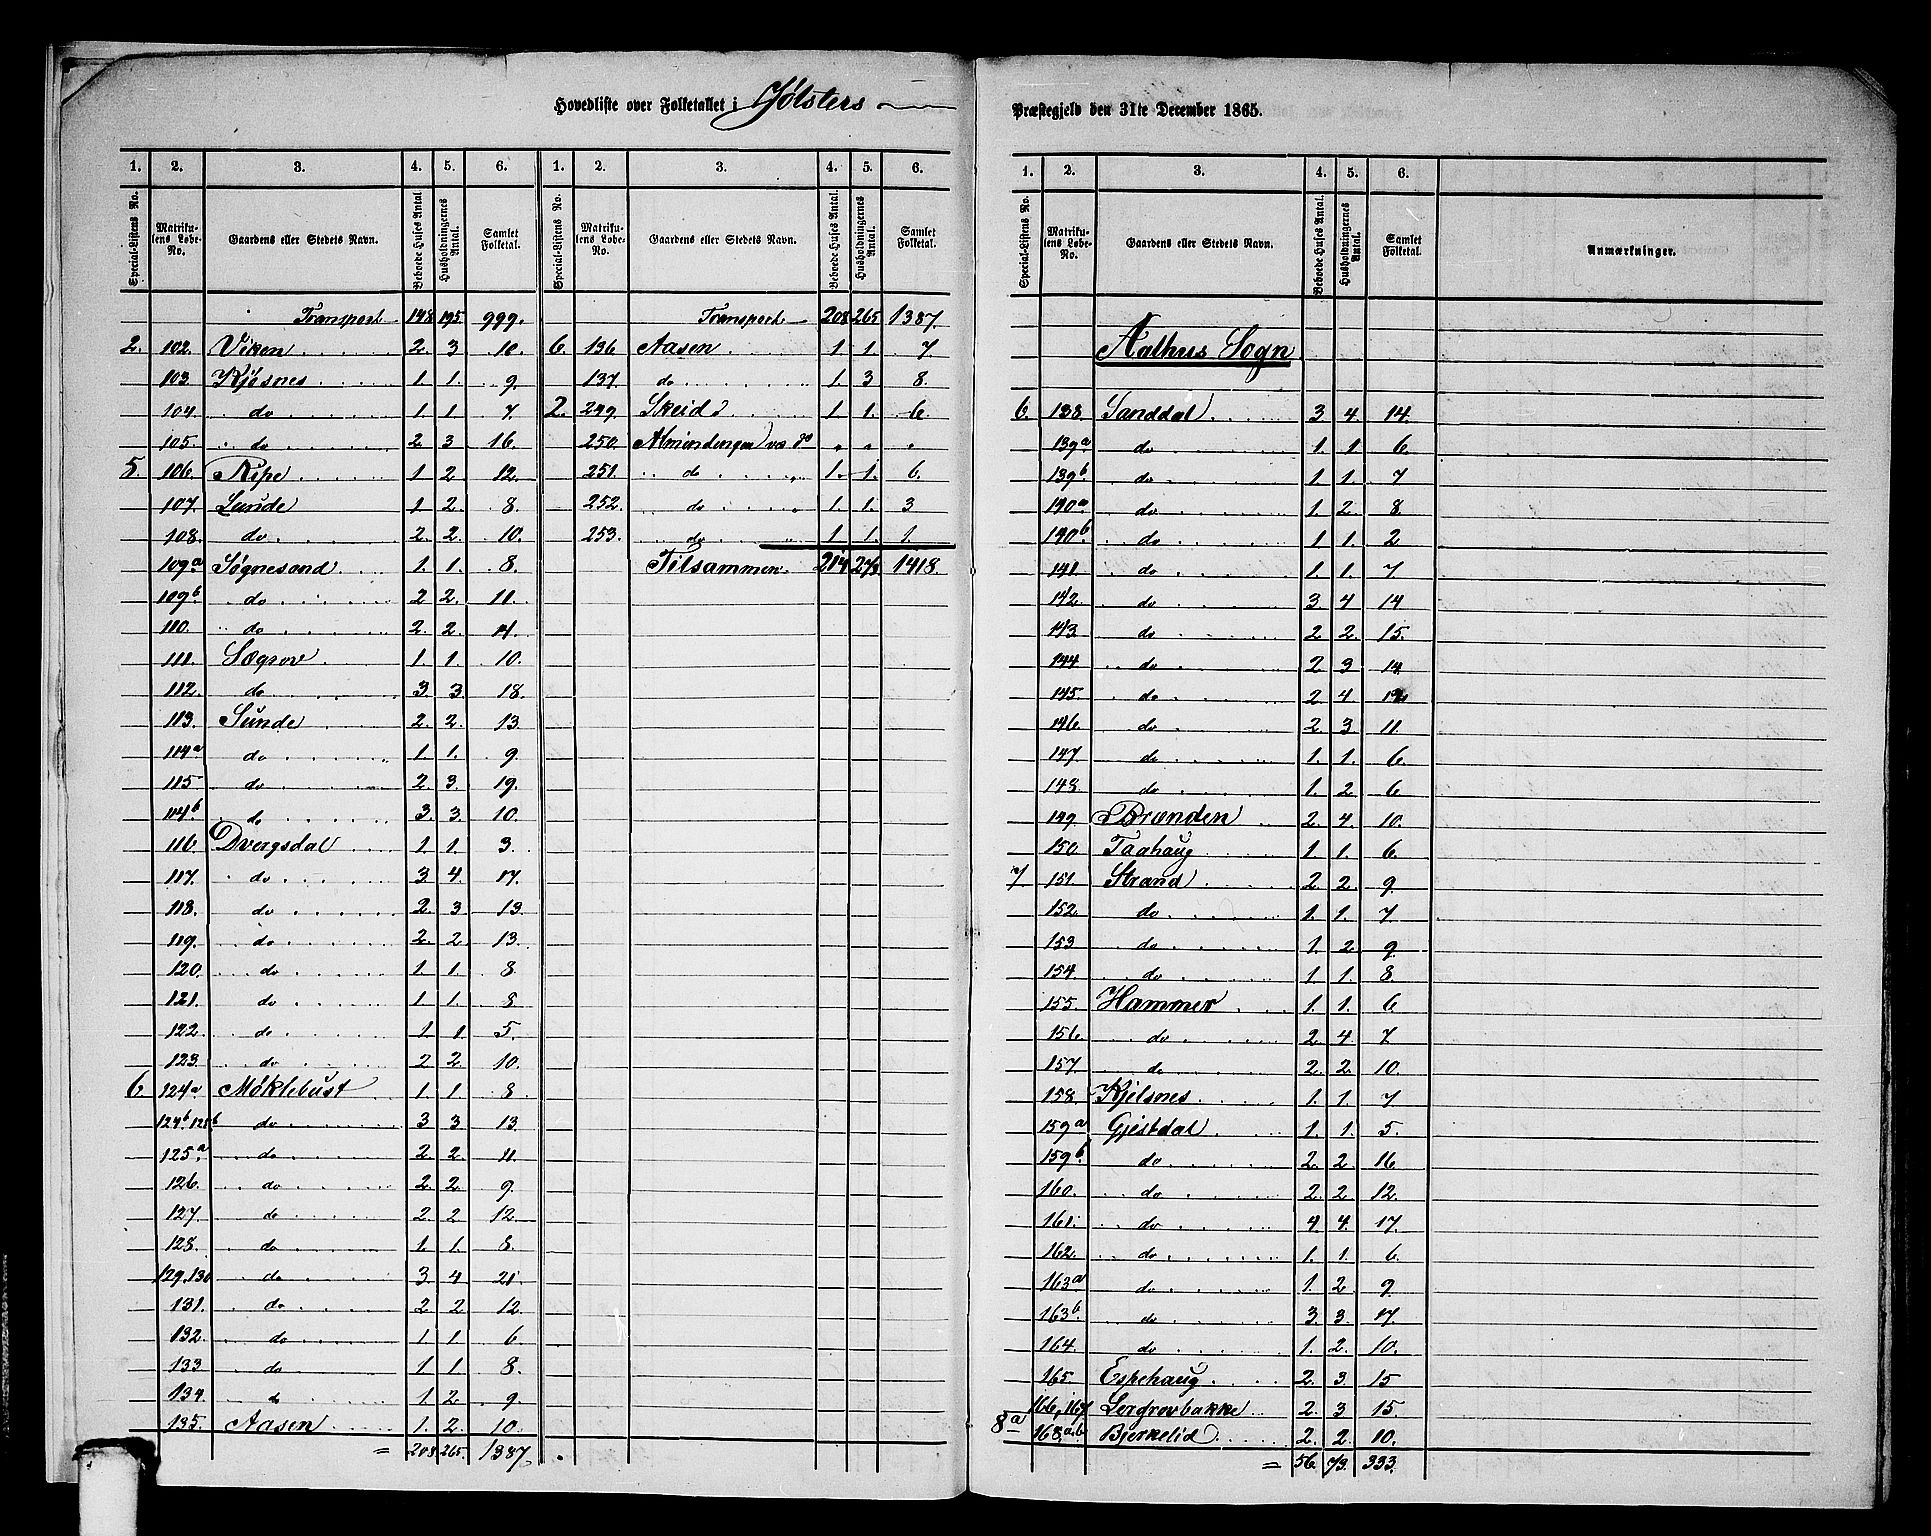 Hovedliste over Folketallet i Jølsters Præstegjeld den 31te December 1865.
1. 2. 3. 4. 5. 6. 1. 2. 3. 4. 5. 6.
Special-Listens No. Matrikulens Løbe-No. Gaardens eller Stedets Navn. Beboede Huses Antal. Husholdningernes Antal. Samlet Folketal. Special-Listens No. Matrikulens Løbe-No. Gaardens eller Stedets Navn. Beboede Huses Antal. Husholdningernes Antal. Samlet Folketal.
Transport 148 195 999.
2. 102. Viken 2. 3 10
103. Kjøsnes 1. 1. 9.
104. do 1. 1 7
105. do 2 3 16.
5. 106. Nipe 1 2 12.
107. Lunde 1 2. 8.
108. do. 2. 2. 10.
109a Søgnesand 1. 1. 8.
109b do 2 2. 11.
110. do 2. 2. 14.
111. Sægrov 1. 1 10.
112. do 3. 3. 18.
113. Sunde 2. 2. 13
114a do 1. 1. 9
115 do 2. 3. 19.
114b do 3. 3 10.
116 Dvergsdal 1 1 3.
117. do 3. 4. 17.
118. do 2. 3 13.
119. do 2. 2 13.
120. do 1. 1. 8.
121. do 1 1. 8
122. do 1 1 5.
123. do 2 2 10.
6. 124a Møklebust 1 1 8
124b 125b do 3 3 13.
125a do 2. 2. 11.
126. do 2. 2 9.
127. do 2. 2 12.
128. do 1. 1. 8.
129. 130 do 3. 4 21.
131. do 2 2 12.
132. do 1 1 6
133 do 1 1 8.
134. do 1 2. 9.
135. Aasen 1. 2. 10.
= 208 265. 1387.
Transport 208 265 1387.
6. 136 Aasen 1 1. 7
137. do 1. 3 8.
2. 249. Skeid 1 1. 6
250. Almindingen ved do " " "
251. do 1. 1. 6.
252. do 1. 1. 3
253. do 1 1. 1.
Tilsammen 214 273 1418.
1. 2. 3. 4. 5. 6.
Special-Listens No. Matrikulens Løbe-No. Gaardens eller Stedets Navn. Beboede Huses Antal. Husholdningernes Antal. Samlet Folketal. Anmærkninger.
Aalhus Sogn
6. 138. Sanddal 3 4 14.
139a do 1 1 6
139b do 1 1. 7
140a do 1. 2 8.
140b do 1 1. 2
141. do 1. 1. 7
142. do 3 4 14
143 do 2 2. 15.
144 do 2 3 14
145. do 2 4
146. do 2 3 11.
147 do 1. 1. 6
148. do 1. 2 6
149. Brænden 2 4. 10.
150. Taahaug 1. 1. 6
7 151. Strand 2 2. 9
152. do 1. 1. 7
153 do 1 2 9
154. do 1 1 8
155. Hammer 1. 1. 6
156. do 2 4 7
157 do 2 2 10
158. Kjelsnes 1. 1. 7
159a Gjestdal 1. 1. 5.
159b. do 2. 2 16
160. do 2 2 12.
161. do 4 4. 17
162. do 1. 1. 6
163a do 1. 2 9
163b do 3. 3. 17.
164. do 1. 2. 10.
165. Espehaug 2. 3. 15
166, 167 Lergrovbakke 2. 3 15.
8a 168a.b Bjerkelid 2. 2 10.
= 56 73. 333.